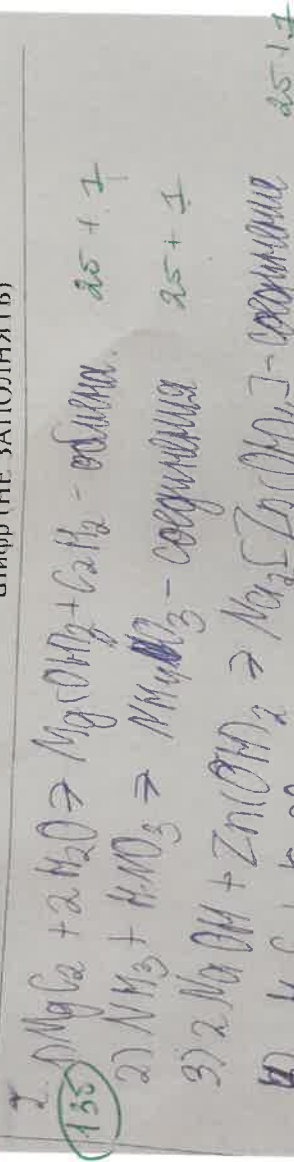 шифр (НЕ ЗАПОЛНЯТЬ)
2.
1) MgC2 + 2H2O → Mg(OH)2 + C2H2 - обмена. 2б + 1
13б
2) NH3 + HNO3 → NH4NO3 - соединения 2б + 1
3) 2NaOH + Zn(OH)2 → Na2[Zn(OH)4] - соединения 2б + 1
4)